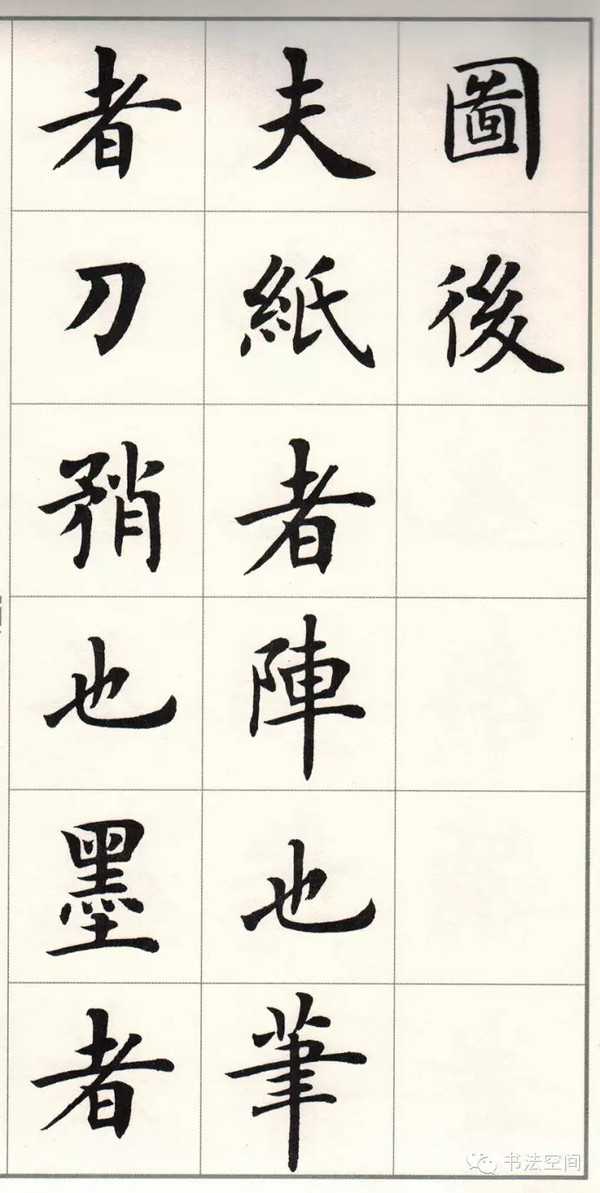 圖後
夫紙者陣也筆
者刀矟也墨者
书法空间